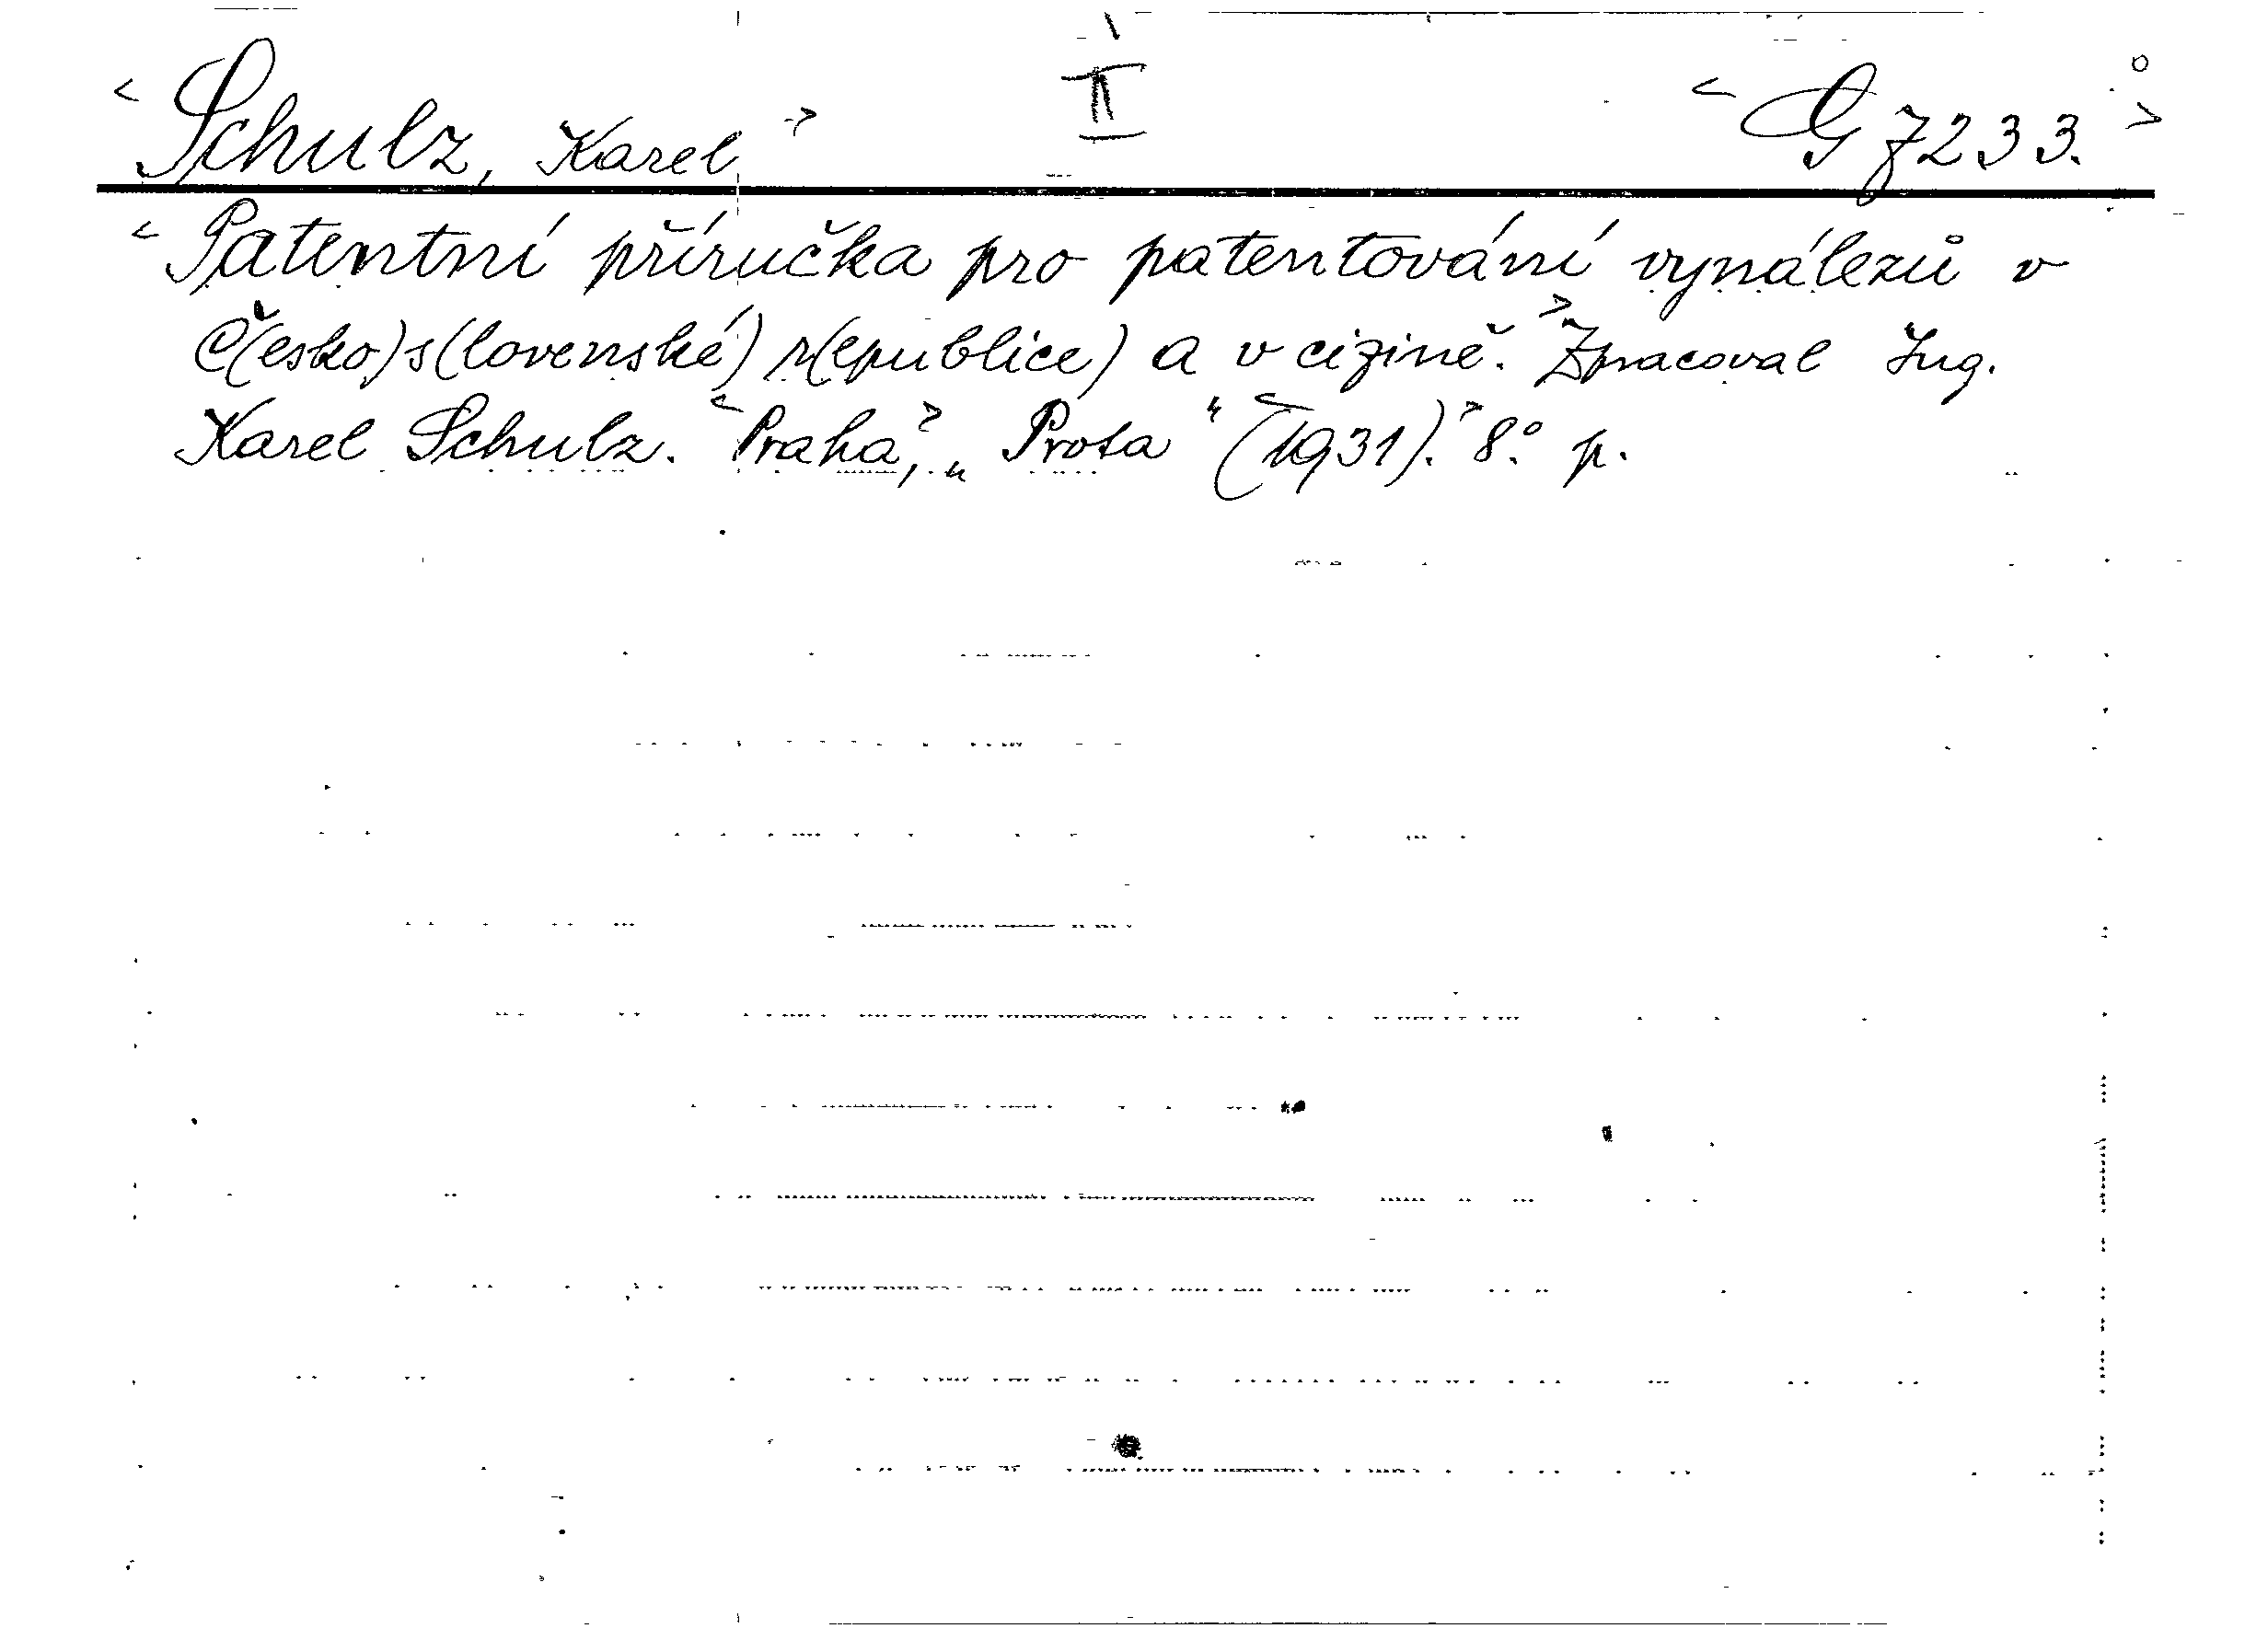 <Schulz, Karel> II <G 7233.>
<Patentní příručka pro patentování vynálezů v
Č(esko)s(lovenské) r(epublice) a v cizině.> Zpracoval Ing.
Karel Schulz. <Praha,> „Prota“ <(1931).> 8.° p.